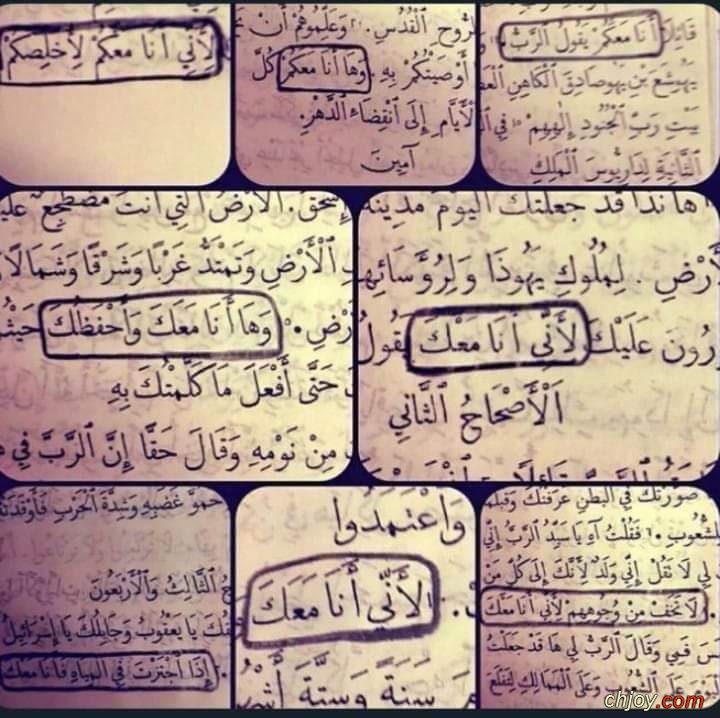 لِأَنِّي أَنَا مَعَكُمْ لِأُخَلِّصَكُمْ
ٱلْقُدُسِ. وَعَلِّمُوهُمْ أَنْ
أَوْصَيْتُكُمْ بِهِ. وَهَا أَنَا مَعَكُمْ كُلَّ
ٱلْأَيَّامِ إِلَى ٱنْقِضَاءِ ٱلدَّهْرِ.
آمِينَ
قَائِلًا أَنَا مَعَكُمْ يَقُولُ ٱلرَّبُّ.
يَهُوشَعَ بْنِ يَهُوصَادَقَ ٱلْكَاهِنِ
بَيْتِ رَبِّ ٱلْجُنُودِ إِلٰهِهِمْ فِي
ٱلثَّانِيَةِ لِدَارِيُوسَ ٱلْمَلِكِ
إِسْحٰقَ. ٱلْأَرْضُ ٱلَّتِي أَنْتَ مُضْطَجِعٌ
ٱلْأَرْضِ وَتَمْتَدُّ غَرْبًا وَشَرْقًا وَشَمَالًا
وَهَا أَنَا مَعَكَ وَأَحْفَظُكَ
حَتَّى أَفْعَلَ مَا كَلَّمْتُكَ بِهِ
مِنْ نَوْمِهِ وَقَالَ حَقًّا إِنَّ ٱلرَّبَّ فِي
هَا نَذَا قَدْ جَعَلْتُكَ ٱلْيَوْمَ مَدِينَة
لِمُلُوكِ يَهُوذَا وَلِرُؤَسَائِهَ
عَلَيْكَ لِأَنِّي أَنَا مَعَكَ يَقُولُ
ٱلْأَصْحَاحُ ٱلثَّانِي
حُمُوَّ غَضَبِهِ وَشِدَّةَ ٱلْحَرْبِ فَأَوْقَدَتْهُ
ٱلثَّالِثُ وَٱلْأَرْبَعُونَ
يَا يَعْقُوبُ وَجَابِلُكَ يَا إِسْرَائِيلُ
إِذَا ٱجْتَزْتَ فِي ٱلْمِيَاهِ فَأَنَا مَعَكَ
وَٱعْتَمَدُوا
لِأَنِّي أَنَا مَعَكَ
سَنَةً وَسِتَّةَ
صَوَّرْتُكَ فِي ٱلْبَطْنِ عَرَفْتُكَ وَقَبْلَمَا
لِلشُّعُوبِ. فَقُلْتُ آهِ يَا سَيِّدُ ٱلرَّبُّ إِنِّي
لِي لَا تَقُلْ إِنِّي وَلَدٌ لِأَنَّكَ إِلَى كُلِّ مَنْ
لَا تَخَفْ مِنْ وُجُوهِهِمْ لِأَنِّي أَنَا مَعَكَ
فَمِي وَقَالَ ٱلرَّبُّ لِي هَا قَدْ جَعَلْتُ
وَعَلَى ٱلْمَمَالِكِ لِتَقْلَعَ
chjoy.com